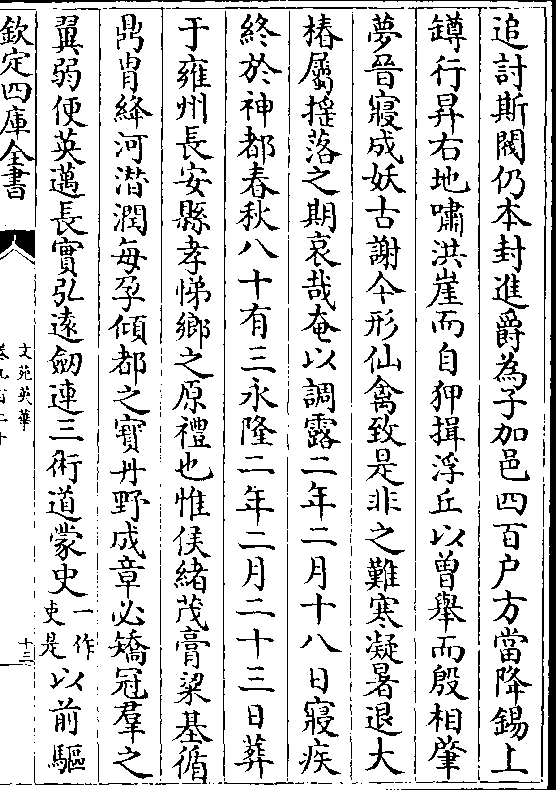 追討斯閥仍本封進爵為子加邑四百户方當降錫上
罇行昇右地嘯洪崖而自狎揖浮丘以曽舉而殷相肈
夢晉寢成妖古謝今形仙禽致是非之難寒凝暑退大
椿屬揺落之期哀哉奄以調露二年二月十八日寢疾
終於神都春秋八十有三永隆二年二月二十三日葬
于雍州長安縣孝悌鄉之原禮也惟侯緒茂膏粱基循
鼎胄絳河潜潤每孕傾都之寳丹野成章必矯冠羣之
翼弱便英邁長實弘逺劒連三術道蒙史一作吏是以前驅
欽定四庫全書
文苑英華
卷九百二十
十三